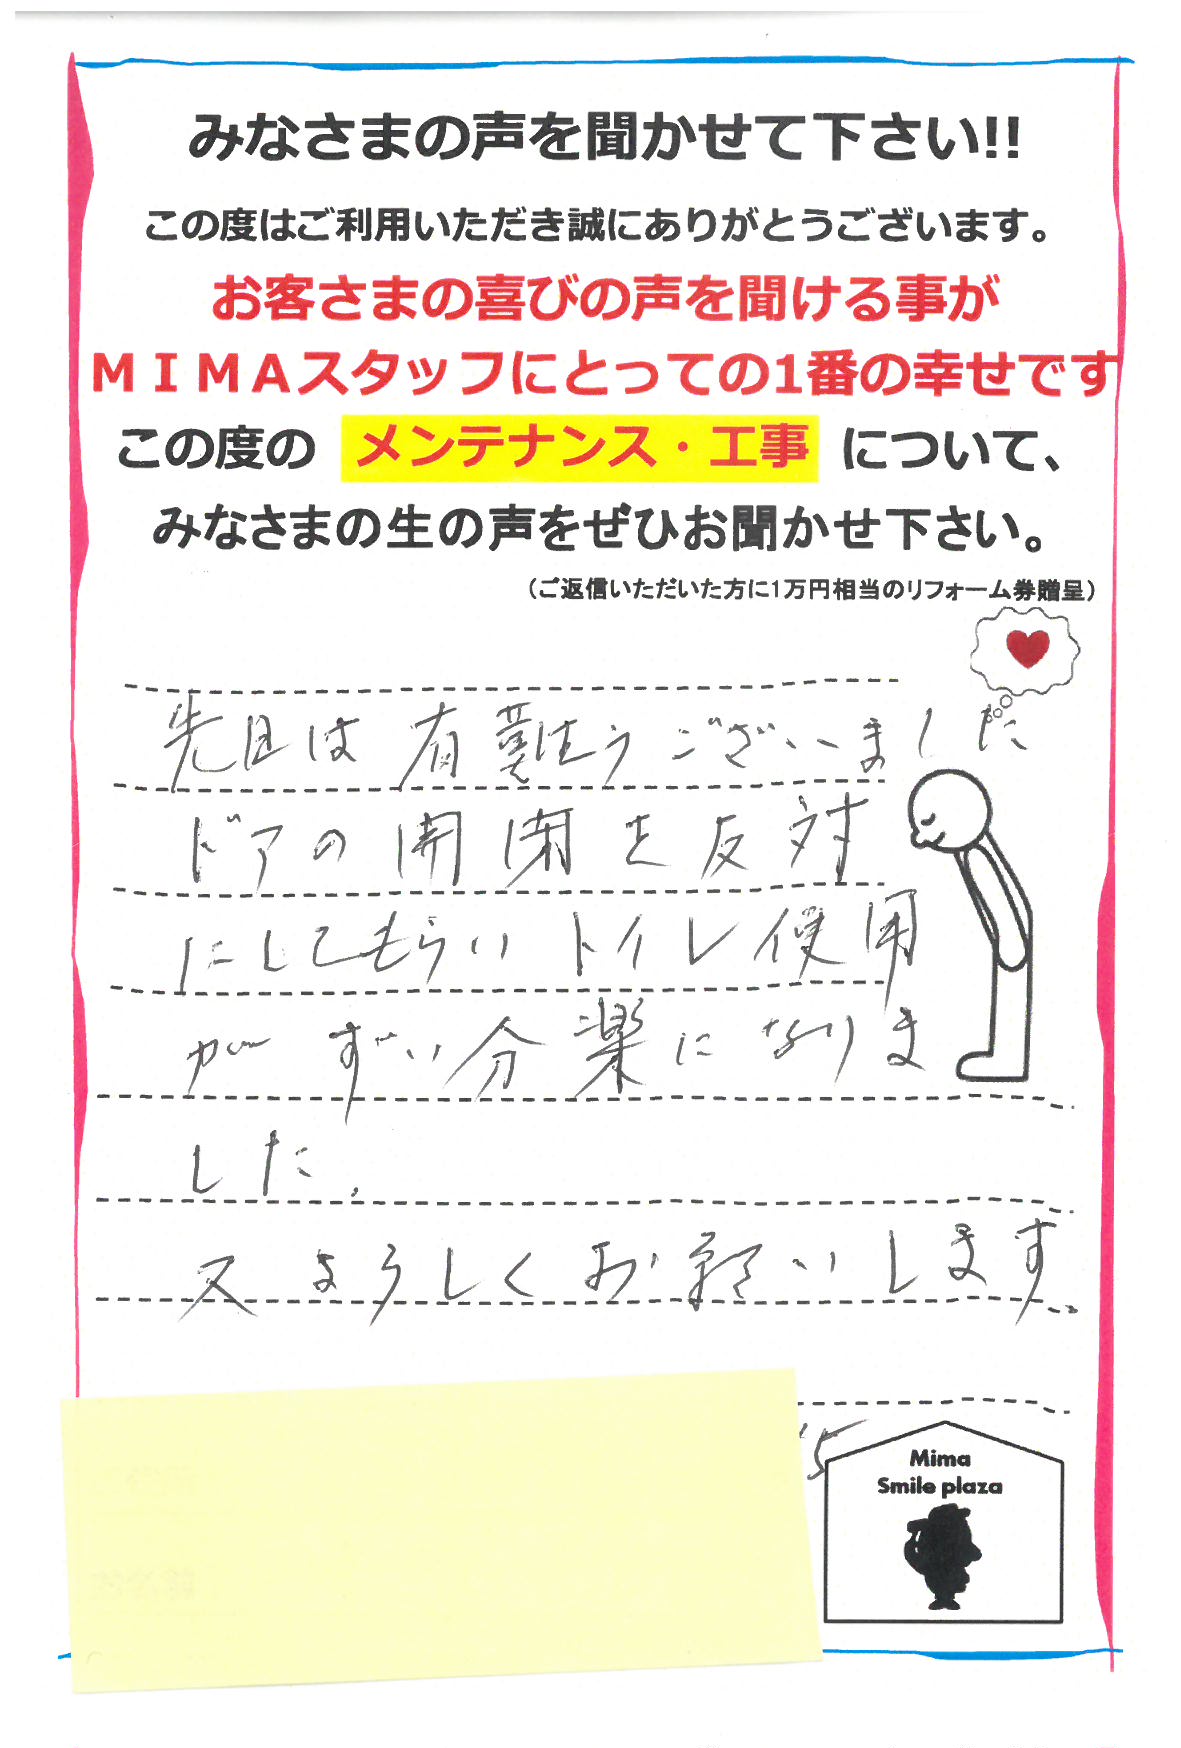 みなさまの声を聞かせて下さい!!
この度はご利用いただき誠にありがとうございます。
お客さまの喜びの声を聞ける事が
ＭＩＭＡスタッフにとっての1番の幸せです
この度の メンテナンス・工事 について、
みなさまの生の声をぜひお聞かせ下さい。
（ご返信いただいた方に1万円相当のリフォーム券贈呈）
先日は有難うございました
ドアの開閉を反対
にしてもらいトイレ使用
がずい分楽になりま
した.
又よろしくお願いします
Mima
Smile plaza